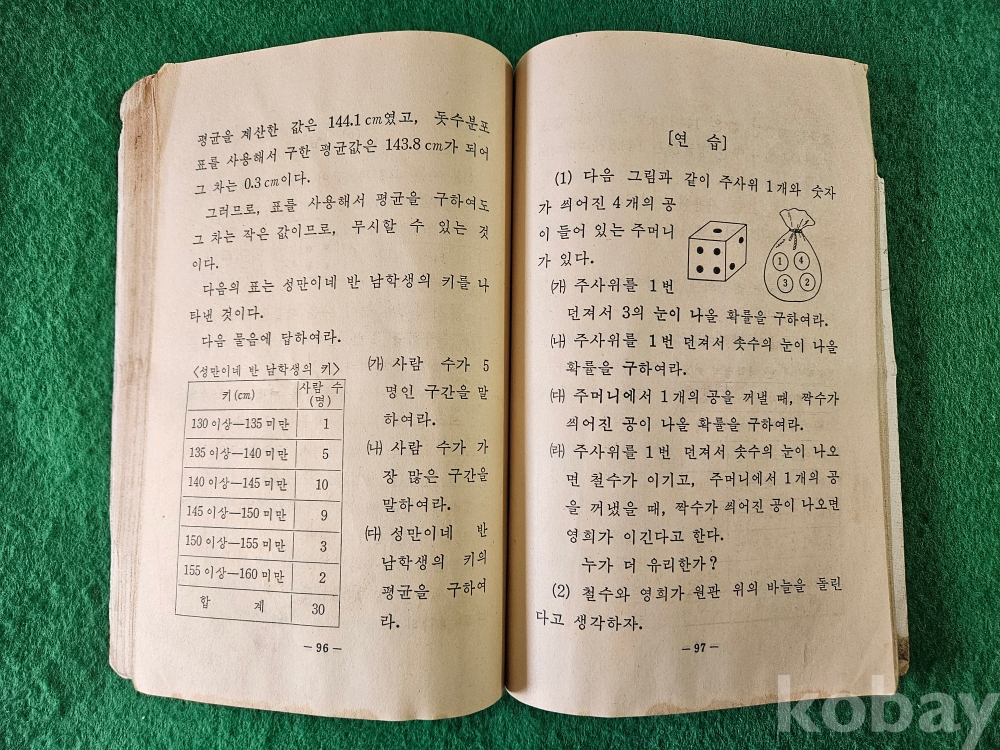 평균을 계산한 값은 144.1 cm였고, 돗수분포
표를 사용해서 구한 평균값은 143.8 cm가 되어
그 차는 0.3 cm이다.
그러므로, 표를 사용해서 평균을 구하여도
그 차는 작은 값이므로, 무시할 수 있는 것
이다.
다음의 표는 성만이네 반 남학생의 키를 나
타낸 것이다.
다음 물음에 답하여라.
〈성만이네 반 남학생의 키〉
키(cm) 사람 수 (명)
130 이상—135 미만 1
135 이상—140 미만 5
140 이상—145 미만 10
145 이상—150 미만 9
150 이상—155 미만 3
155 이상—160 미만 2
합 계 30
㈎ 사람 수가 5
명인 구간을 말
하여라.
㈏ 사람 수가 가
장 많은 구간을
말하여라.
㈐ 성만이네 반
남학생의 키의
평균을 구하여
라.
— 96 —
[연 습]
(1) 다음 그림과 같이 주사위 1개와 숫자
가 씌어진 4개의 공
이 들어 있는 주머니
가 있다.
1 4
3 2
㈎ 주사위를 1번
던져서 3의 눈이 나올 확률을 구하여라.
㈏ 주사위를 1번 던져서 솟수의 눈이 나올
확률을 구하여라.
㈐ 주머니에서 1개의 공을 꺼낼 때, 짝수가
씌어진 공이 나올 확률을 구하여라.
㈑ 주사위를 1번 던져서 솟수의 눈이 나오
면 철수가 이기고, 주머니에서 1개의 공
을 꺼냈을 때, 짝수가 씌어진 공이 나오면
영희가 이긴다고 한다.
누가 더 유리한가?
(2) 철수와 영희가 원판 위의 바늘을 돌린
다고 생각하자.
— 97 —
kobay